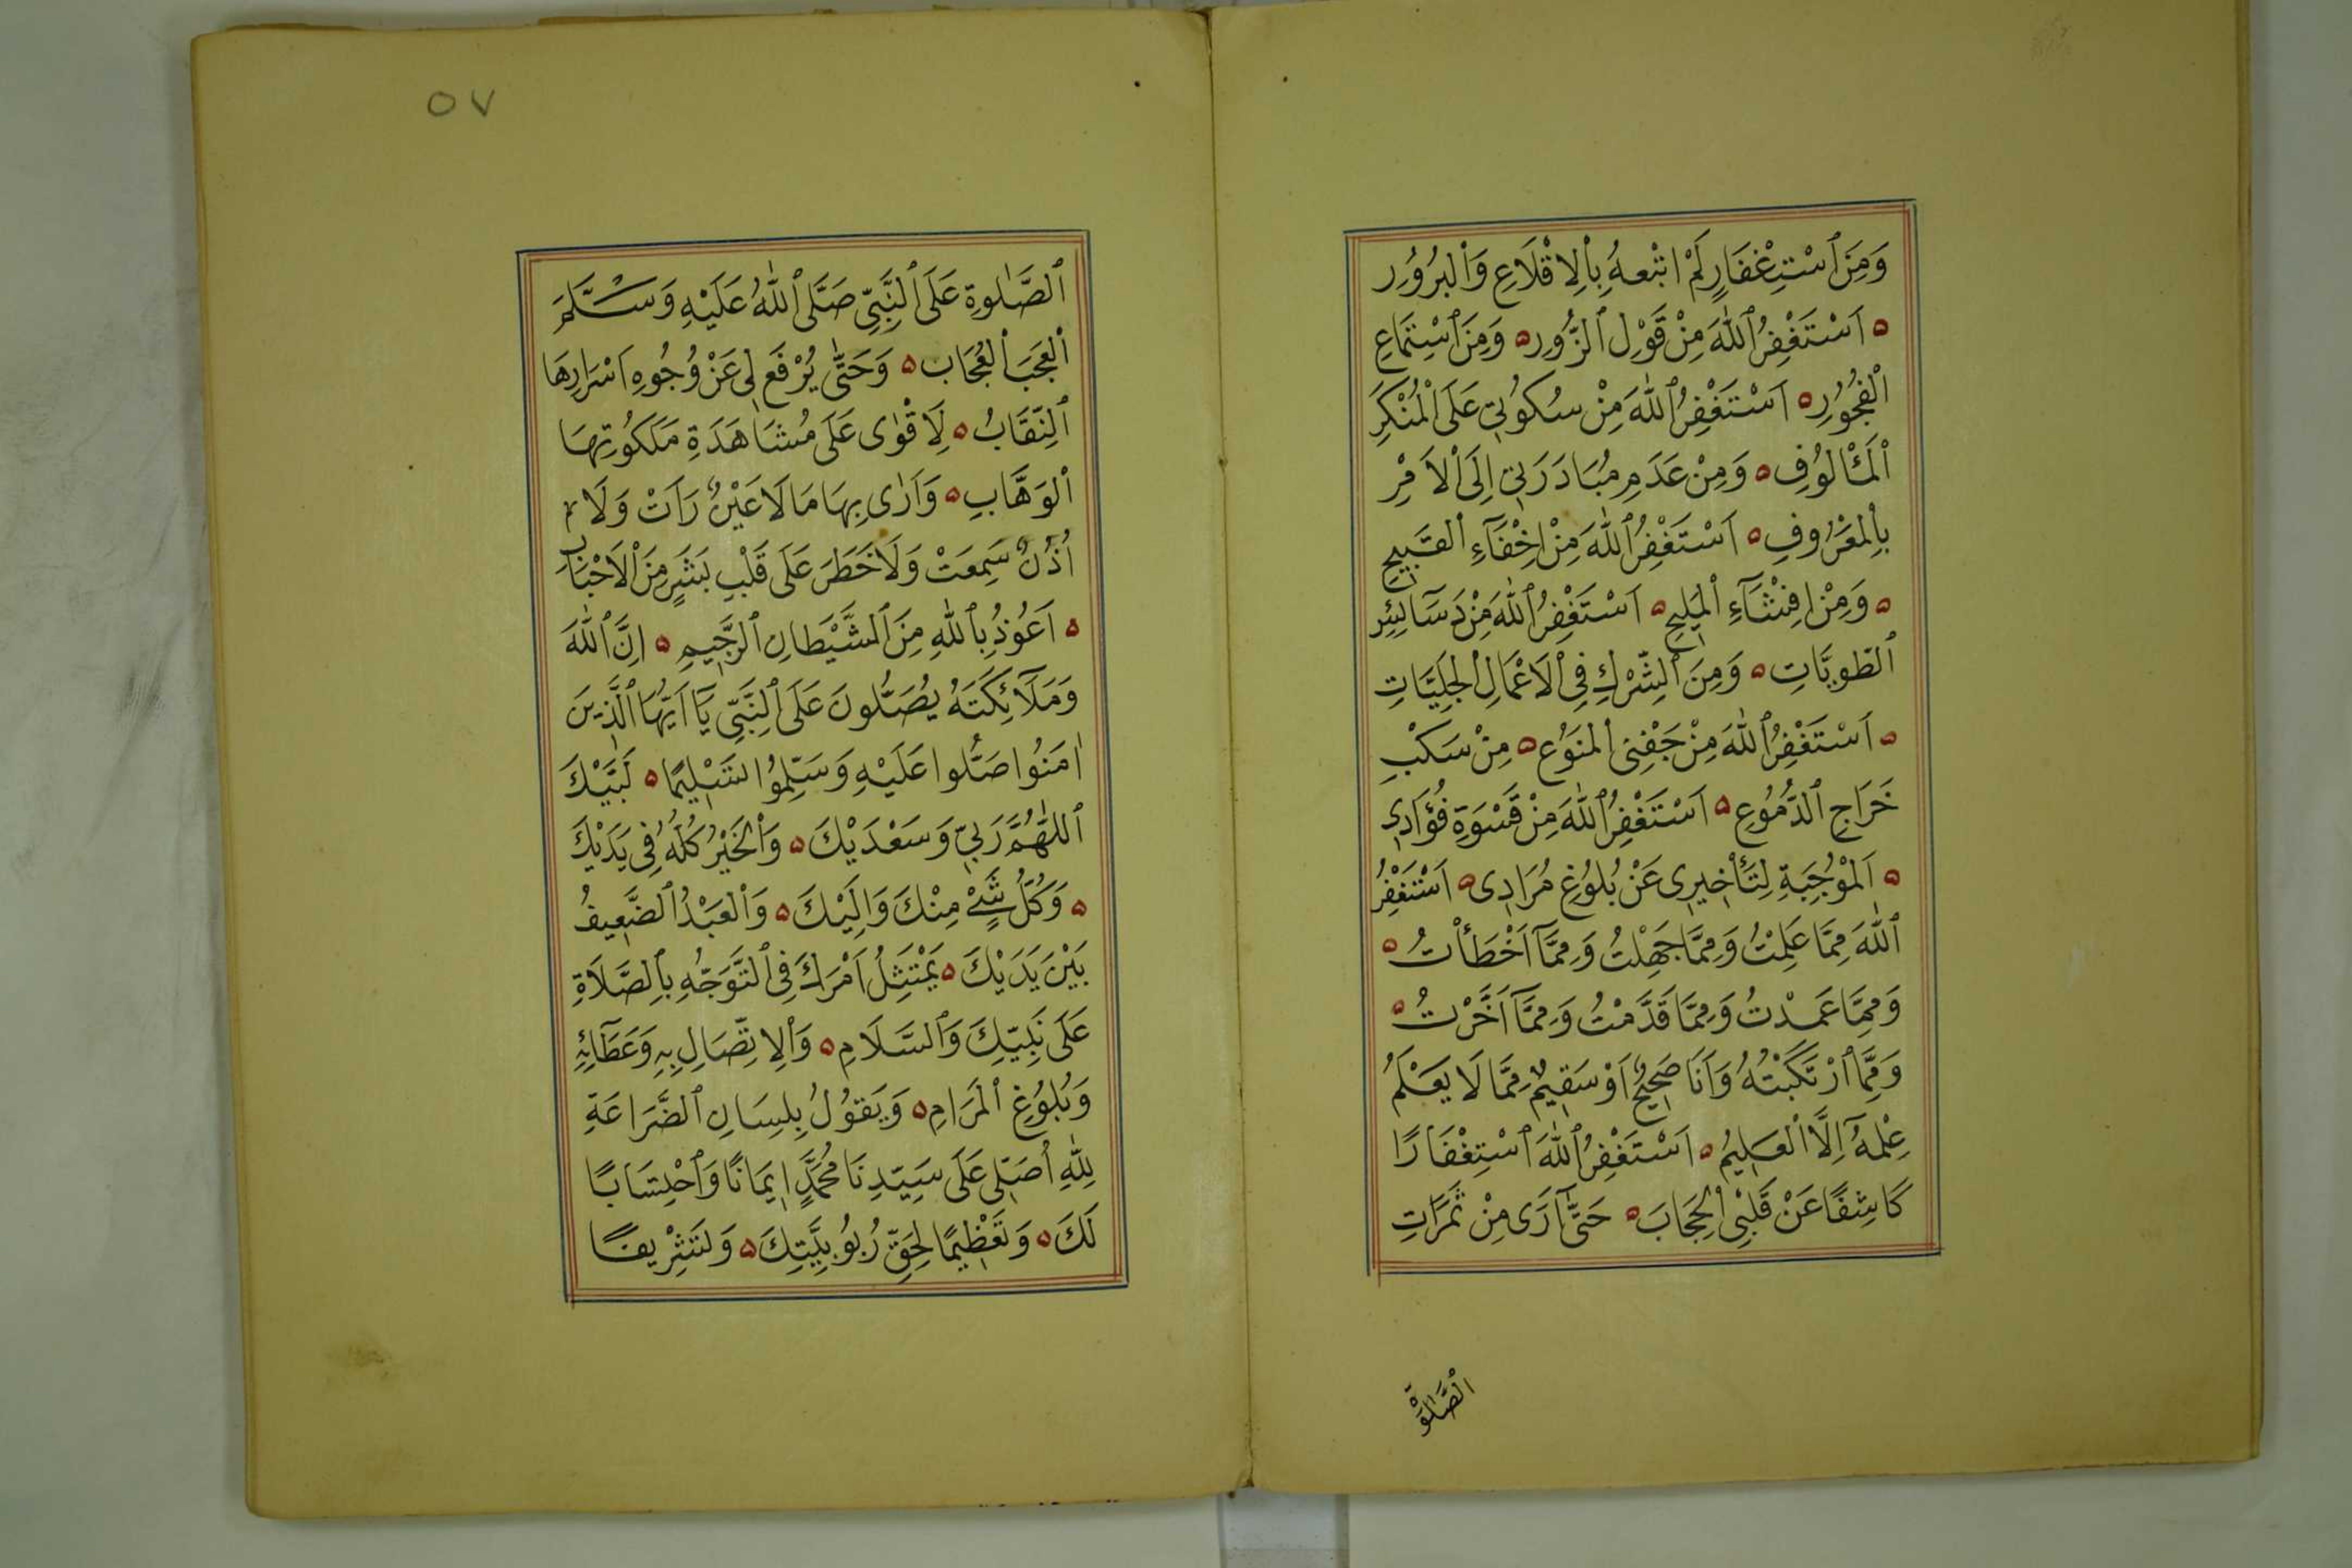 وَمِنَ ٱسْتِغْفَارٍ لَمْ اتْبعهُ بِاْلِاقْلَاعِ وَاْلبُرُوُر
ه اَسْتَغْفِرُ ٱللّٰهَ مِنْ قَوْلِ ٱلزُّورِ ه وَمِنَ ٱسْتِمَاعِ
اْلفُجُوُرِ ه اَسْتَغْفِرُ ٱللّٰهَ مِنْ سُكُوُتِي عَلَى الْمُنْكَرِ
اْلمَأْلوُفِ ه وَمِنْ عَدَمِ مُبَادَرَتِي اِلَى اْلاَمْرِ
بِاْلمَعْرُوفِ ه اَسْتَغْفِرُ ٱللّٰهَ مِنْ اِخْفَآءِ اْلقَبِيحِ
ه وَمِنْ اِفِشْآءِ اْلمَلِيحِ ه اَسْتَغْفِرُ ٱللّٰهَ مِنْ دَسَآئِسِ
ٱلطَّوِيَّاتِ ه وَمِنَ ٱلشِّرْكِ فِي اْلاَعْمَالِ اْلجَلِيَّاتِ
ه اَسْتَغْفِرُ ٱللّٰهَ مِنْ جَفْنِى اْلمَنوُعِ ه مِنْ سَكْبِ
خَرَاجِ ٱلدُّمُوُعِ ه اَسْتَغْفِرُ ٱللّٰهَ مِنْ قَسْوَةِ فُؤَادِي
ه اَلمُوْجِبَةِ لِتَأْخِيرِى عَنْ بُلوُغِ مُرَادِى ه اَسْتَغْفِرُ
ٱللّٰهَ مِمَّا عَلِمْتُ وَمِمَّا جَهِلْتُ وَمِمَّآ اَخْطَأْتُ ه
وَمِمَّا عَمَدْتُ وَمِمَّا قَدَّمْتُ وَمِمَّآ اَخَّرْتُ ه
وَمِمَّا ٱرْتَكَبْتُهُ وَاَنَا صَحِيحٌ اَوْ سَقِيمٌ مِمَّا لَا يَعْلَمُ
عِلْمهُ اِلَّا اْلعَلِيمُ ه اَسْتَغْفِرُ ٱللّٰهَ ٱسْتِغْفَارًا
كَاشِفًا عَنْ قَلْبِى اْلحِجَابَ ه حَتّٰى آرَى مِنْ ثَمَرَاتِ
الصَّلٰوة
٥٧
ٱلصَّلٰوةِ عَلَى ٱلنَّبِيِّ صَلَّى ٱللّٰهُ عَلَيْهِ وَسَلَّمَ
اْلعَجَبَ اْلعُجَاب ه وَحَتّٰى يُرْفَع لِى عَنْ وُجُوهِ اَسْرَارِهَا
ٱلنِّقَابُ ه لِاَقْوٰى عَلَى مُشَاهَدَةِ مَلَكُوتِهَا
اْلوَهَّابِ ه وَاَرٰى بِهَا مَالَا عَيْنٌ رَاَتْ وَلَا
اُذُنٌ سَمِعَتْ وَلَا خَطَرَ عَلَى قَلْبِ بَشَرٍ مِنَ اْلاَحْبَابِ
ه اَعُوُذُ بِٱللّٰهِ مِنَ ٱلشَّيْطَانِ ٱلرَّجِيمِ ه اِنَّ ٱللّٰهَ
وَمَلَآئِكَتَهُ يُصَلُّونَ عَلَى ٱلنَّبِيِّ يَآ اَيُّهَا ٱلَّذِينَ
اٰمَنُوا صَلُّوا عَلَيْهِ وَسَلِّمُوُا تَسْلِيمًا ه لَبَّيْكَ
ٱللّٰهُمَّ رَبِّي وَسَعْدَيْكَ ه وَاْلخَيْرُ كُلُّهُ فِى يَدَيْكَ
ه وَكُلُّ شَىْءٍ مِنْكَ وَاِلَيْكَ ه وَاْلعَبْدُ ٱلضَّعِيفُ
بَيْنَ يَدَيْكَ ه يَمْتَثِلُ اَمْرَكَ فِى ٱلتَّوَجُّهِ بِٱلصَّلَاةِ
عَلَى نَبِيِّكَ وَٱلسَّلَامِ ه وَاْلِاتِّصَالِ بِهِ وَعَطَآئِهِ
وَبُلوُغِ اْلمَرَامِ ه وَيَقوُلُ بِلِسَانِ ٱلضَّرَاعَةِ
لِلّٰهِ اُصَلِّى عَلَى سَيِّدِنَا مُحَمَّدٍ اِيمَانًا وَٱحْتِسَابًا
لَكَ ه وَتَعْظِيمًا لِحَقِّ رُبوُبِيَّتِكَ ه وَتَشْرِيفًا